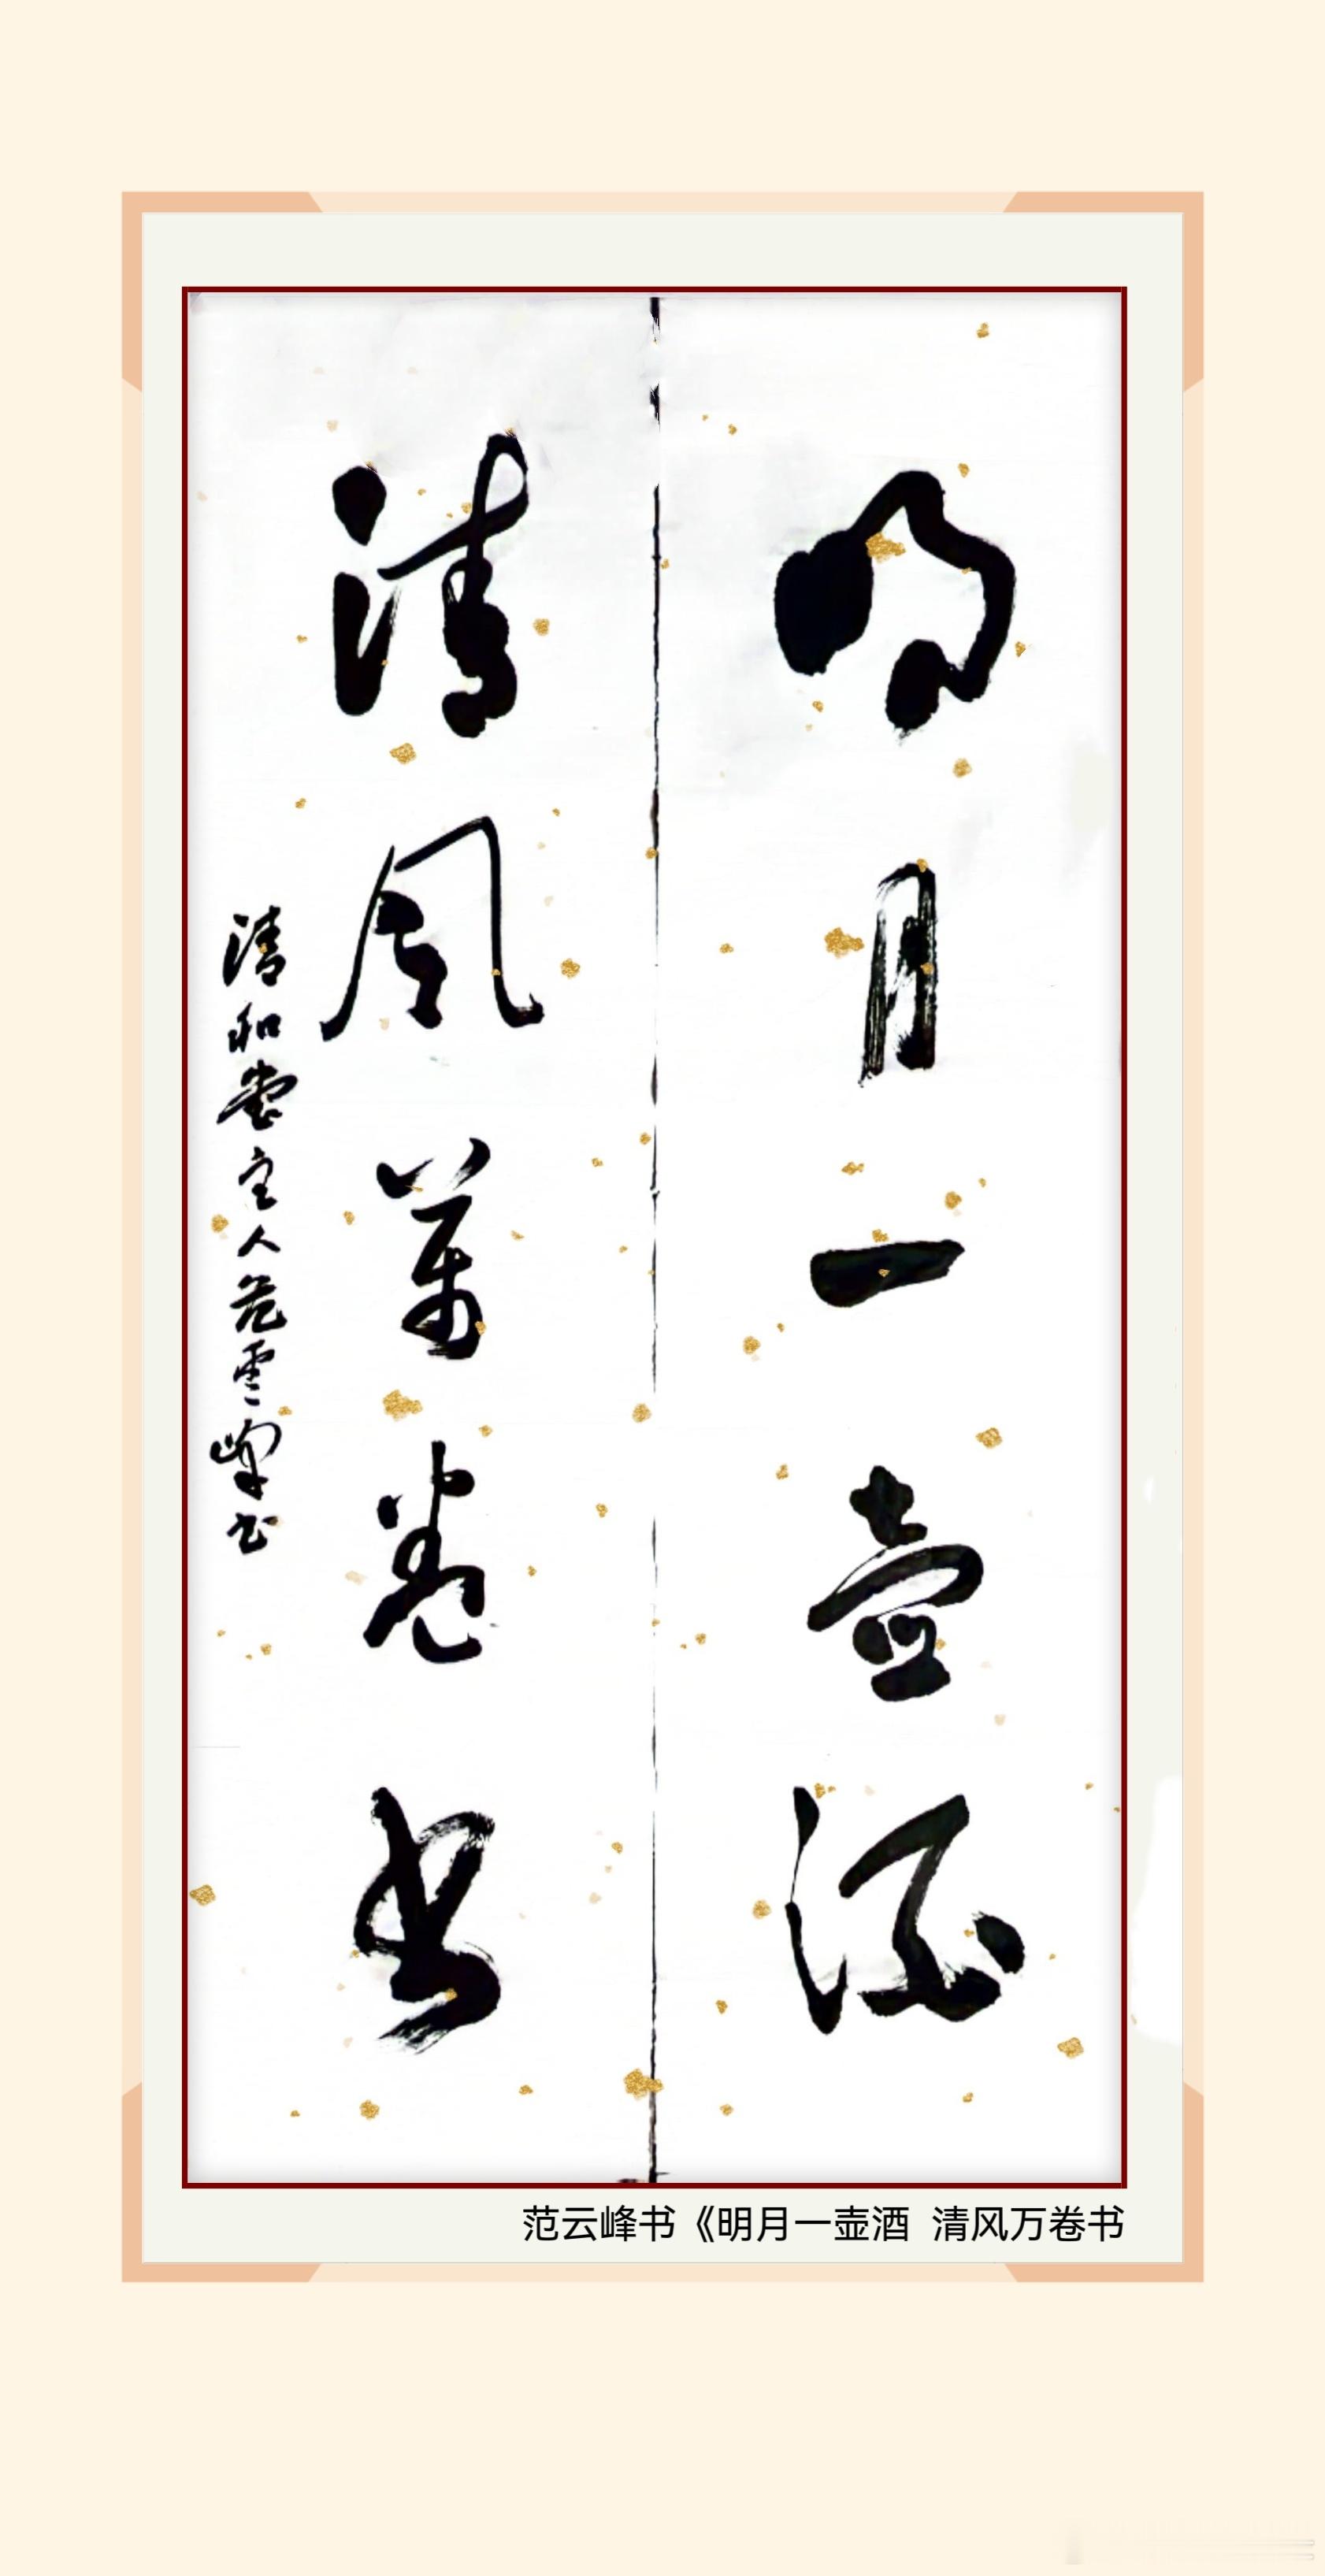 明月一壶酒
清风万卷书
清和堂主人范雲峰书
范云峰书《明月一壶酒 清风万卷书